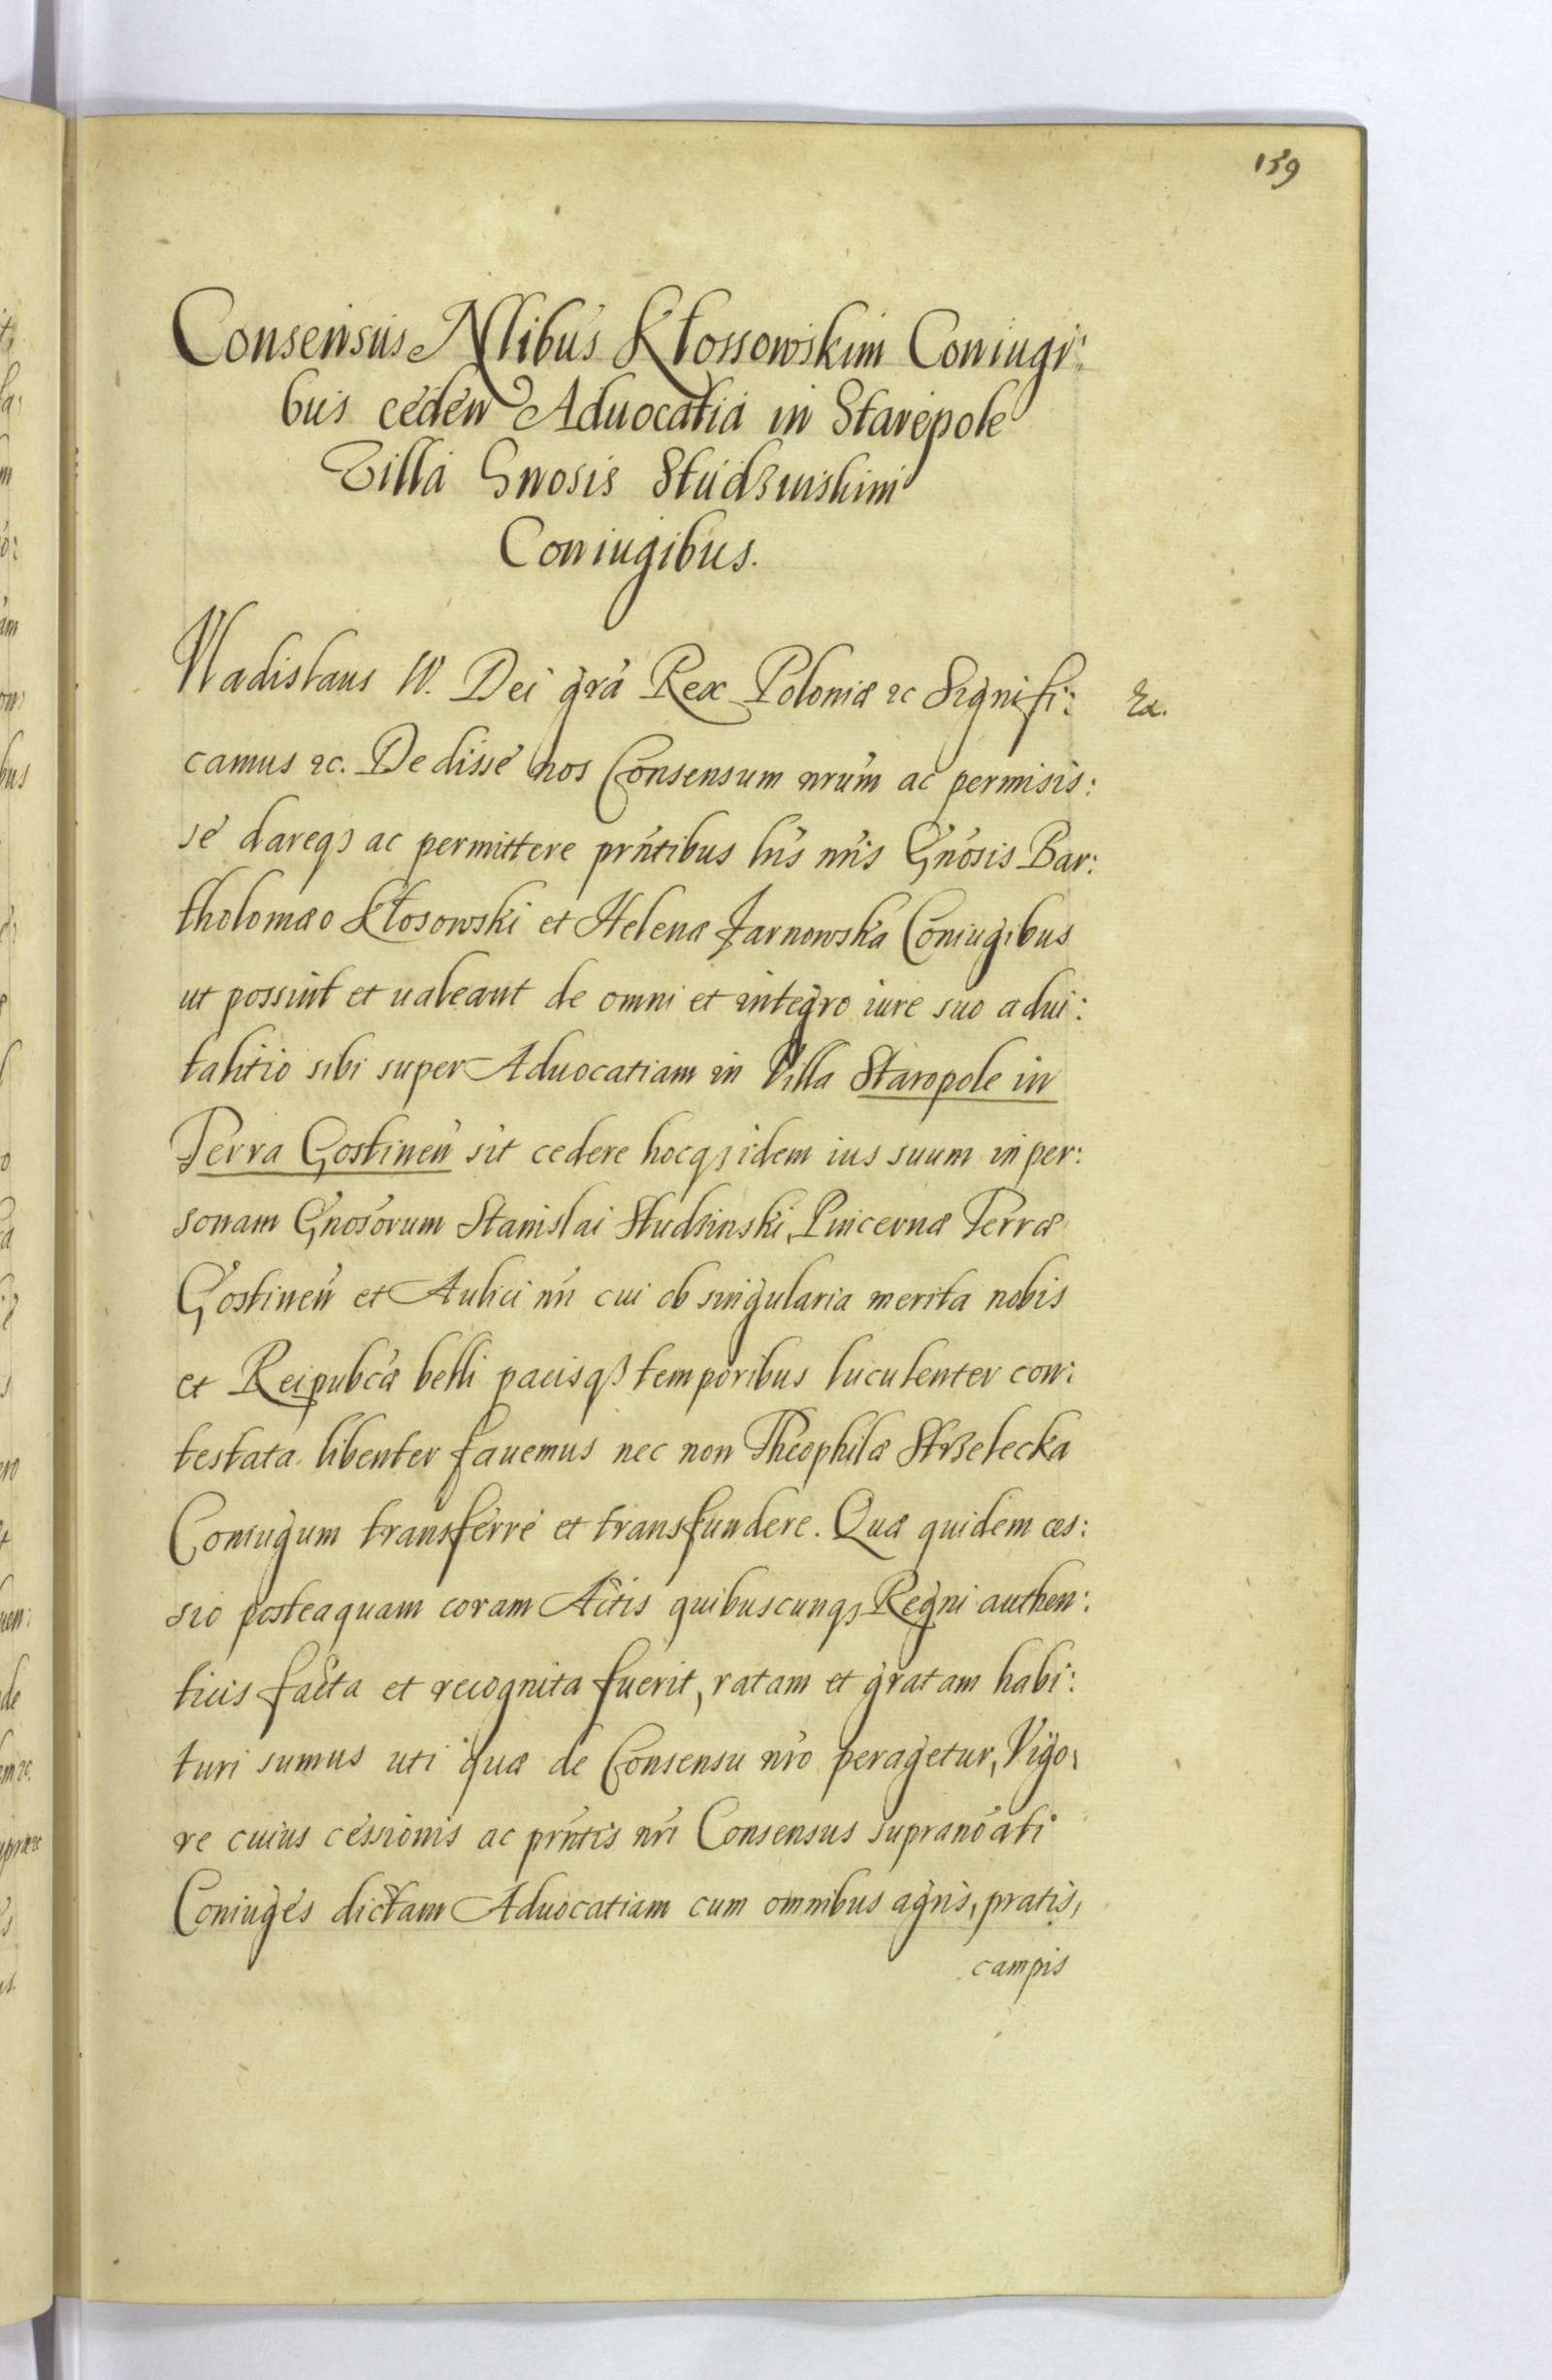 159
Consensus Nlibus Kłossowskim Coniugi:
bus ceden Aduocatiâ in Starepole
Villa Gnosis Studzinskim
Coniugibus.
Vladislaus IV. Dei grâ Rex Poloniæ &c Signifi:
Ex.
camus &c. Dedisse nos Consensum nrum ac permisis:
se dareq3 ac permittere prntibus lris nris Gnosis Bar:
tholomæo Kłosowski et Helenæ Jarnowska Coniugibus
ut possint et ualeant de omni et integro iure suo adui:
talitio sibi super Aduocatiam in Villa Staropole in
Terra Gostinen sit cedere hocq3 idem ius suum in per:
sonam Gnosorum Stanislai Studzinski, Pincernæ Terræ
Gostinen et Aulici nri cui ob singularia merita nobis
et Reipubcæ belli pacisq3 temporibus luculenter con:
testata libenter fauemus nec non Theophilæ Strzelecka
Coniugum transferre et transfundere. Quæ quidem ces:
sio posteaquam coram Actis quibuscunq3 Regni authen:
ticis facta et recognita fuerit, ratam et gratam habi:
turi sumus uti quæ de Consensu nro peragetur, Vigo:
re cuius cessionis ac prntis nri Consensus supranoati
Coniuges dictam Aduocatiam cum omnibus agris, pratis,
campis